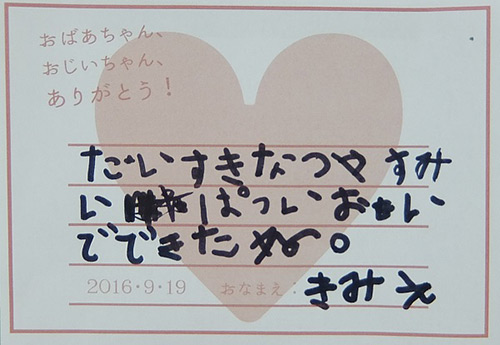 おばあちゃん、
おじいちゃん、
ありがとう!
だいすきなつやすみ
い ぱっいおもい
でできたね。
2016・9・19 おなまえ:きみえ